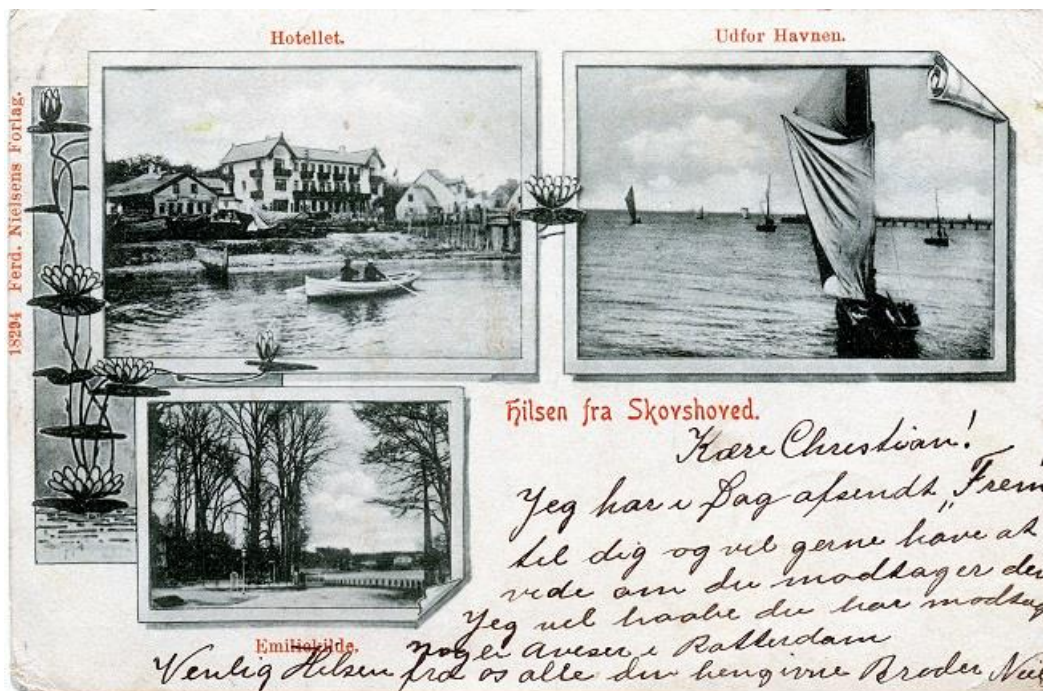 Hotellet.
Udfor Havnen.
18294 Ferd. Nielsens Forlag.
Hilsen fra Skovshoved.
Emiliekilde.
Kære Christian!
Jeg har i Dag afsendt „Frem
til dig og vil gerne have at
vide om du modtager den
Jeg vil haabe du har modtag
nogen Aveser i Rotterdam
Venlig Hilsen fra os alle din hengivne Broder